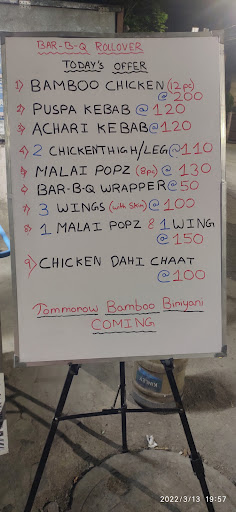 BAR-B-Q ROLLOVER
TODAY'S OFFER
1) BAMBOO CHICKEN (12 pc)
@ 200
2) PUSPA KEBAB @ 120
3) ACHARI KEBAB @ 120
4) 2 CHICKEN THIGH/LEG @ 110
5) MALAI POPZ (8 pc) @ 130
6) BAR-B-Q WRAPPER @ 50
7) 3 WINGS (with skin) @ 100
8) 1 MALAI POPZ & 1 WING
@ 150
9) CHICKEN DAHI CHAAT
@ 100
Tommorow Bamboo Biriyani
COMING
2022/3/13 19:57